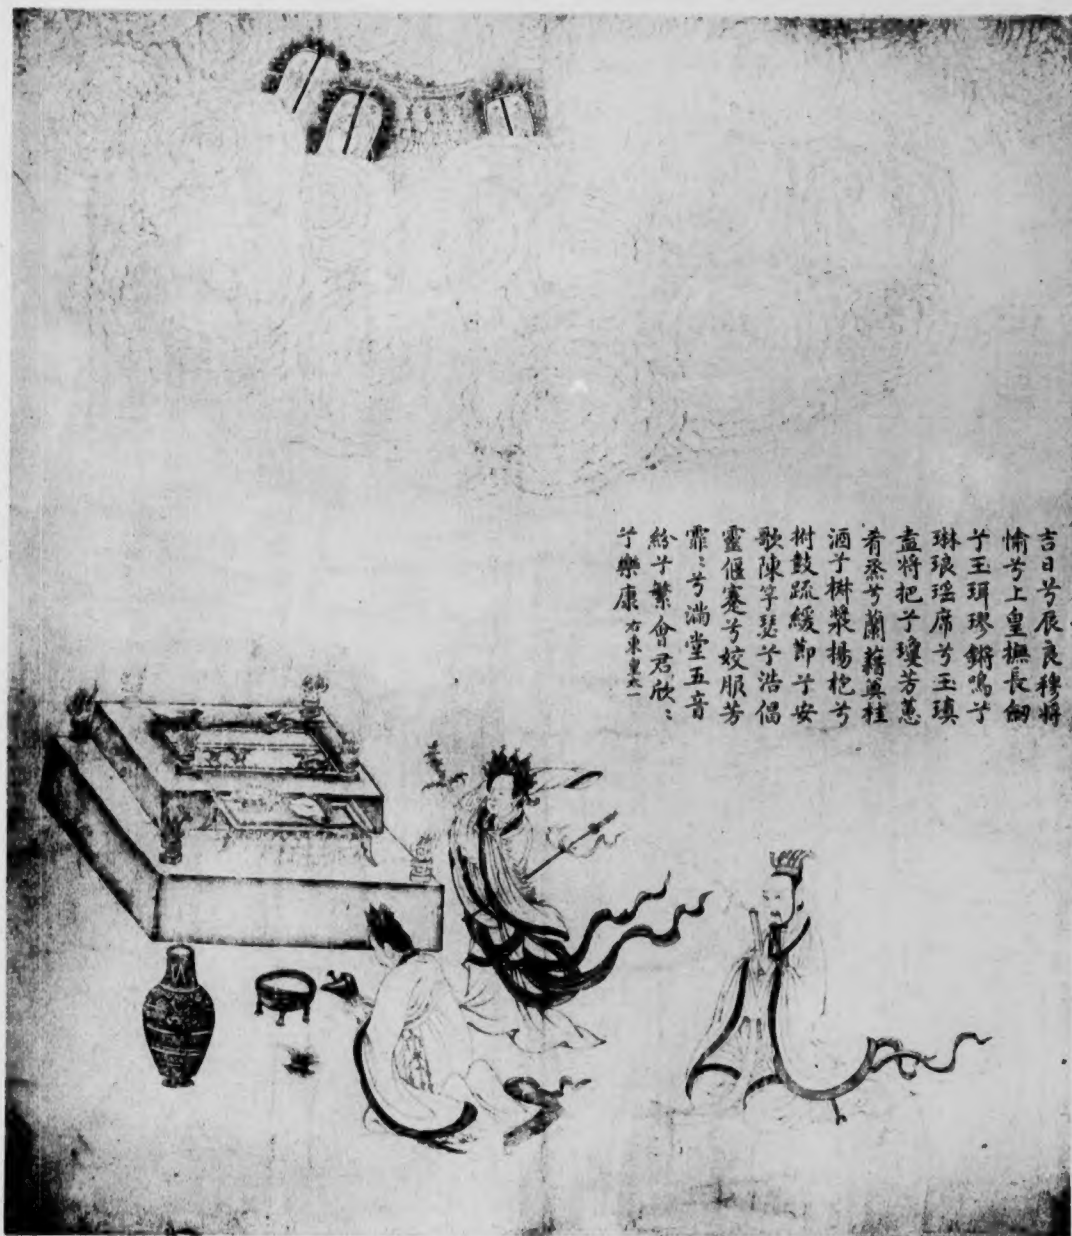 吉日兮辰良穆將
愉兮上皇撫長劒
兮玉珥璆鏘鳴兮
琳琅瑶席兮玉瑱
盍將把兮瓊芳蕙
肴烝兮蘭藉奠桂
酒兮椒漿揚枹兮
拊鼓疏緩節兮安
歌陳竽瑟兮浩倡
靈偃蹇兮姣服芳
霏〻兮滿堂五音
紛兮繁會君欣〻
兮樂康 右東皇太一